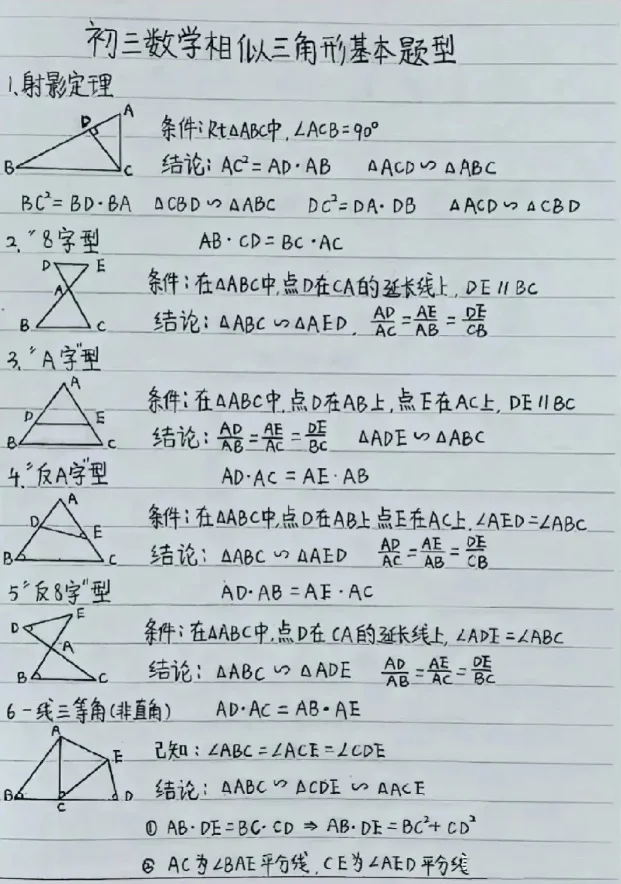 初三数学相似三角形基本题型
1.射影定理
A
D
B
C
条件:Rt△ABC中,∠ACB=90°
结论:AC²=AD·AB △ACD∽△ABC
BC²=BD·BA △CBD∽△ABC DC²=DA·DB △ACD∽△CBD
2."8字型 AB·CD=BC·AC
D E
A
B C
条件:在△ABC中,点D在CA的延长线上,DE∥BC
结论:△ABC∽△AED, AD/AC=AE/AB=DE/CB
3."A字"型
A
D E
B C
条件:在△ABC中,点D在AB上,点E在AC上,DE∥BC
结论:AD/AB=AE/AC=DE/BC △ADE∽△ABC
4."反A字"型 AD·AC=AE·AB
A
D
E
B C
条件:在△ABC中,点D在AB上点E在AC上,∠AED=∠ABC
结论:△ABC∽△AED AD/AC=AE/AB=DE/CB
5"反8字"型 AD·AB=AE·AC
E
D
A
B C
条件:在△ABC中,点D在CA的延长线上,∠ADE=∠ABC
结论:△ABC∽△ADE AD/AB=AE/AC=DE/BC
6一线三等角(非直角) AD·AC=AB·AE
A
E
B
C
D
已知:∠ABC=∠ACE=∠CDE
结论:△ABC∽△CDE∽△ACE
① AB·DE=BC·CD⇒AB·DE=BC²+CD²
② AC为∠BAE平分线,CE为∠AED平分线